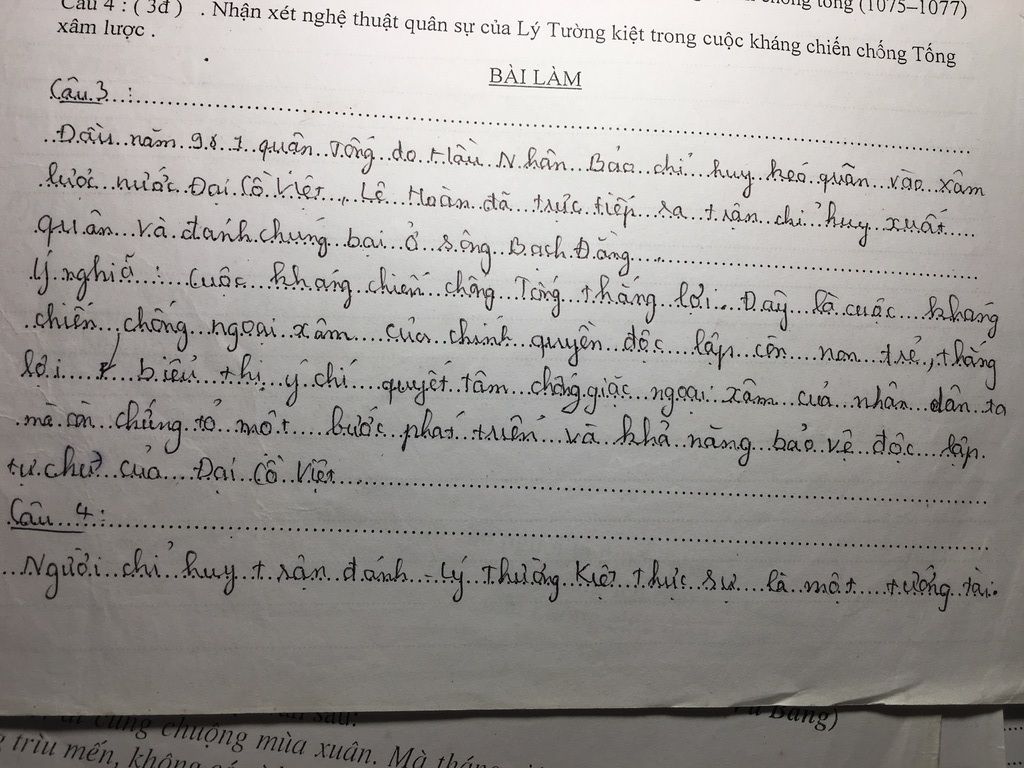 chống tống (1075–1077)
Câu 4 : ( 3đ ) . Nhận xét nghệ thuật quân sự của Lý Tường kiệt trong cuộc kháng chiến chống Tống
xâm lược .
BÀI LÀM
Câu 3 :
Đầu năm 981 quân Tống do Hầu Nhân Bảo chỉ huy kéo quân vào xâm
lược nước Đại Cồ Việt. Lê Hoàn đã trực tiếp ra trận chỉ huy xuất
quân và đánh chúng bại ở sông Bạch Đằng
Ý nghiã : Cuộc kháng chiến chống Tống thắng lợi. Đây là cuộc kháng
chiến chống ngoại xâm của chính quyền độc lập còn non trẻ, thắng
lợi biểu thị ý chí quyết tâm chống giặc ngoại xâm của nhân dân ta
mà còn chứng tỏ một bước phát triển và khả năng bảo vệ độc lập
tự chủ của Đại Cồ Việt
Câu 4 :
Người chỉ huy trận đánh - Lý Thường Kiệt thực sự là một tướng tài.
cũng chuộng mùa xuân. Mà tháng
trìu mến, không
Bằng)